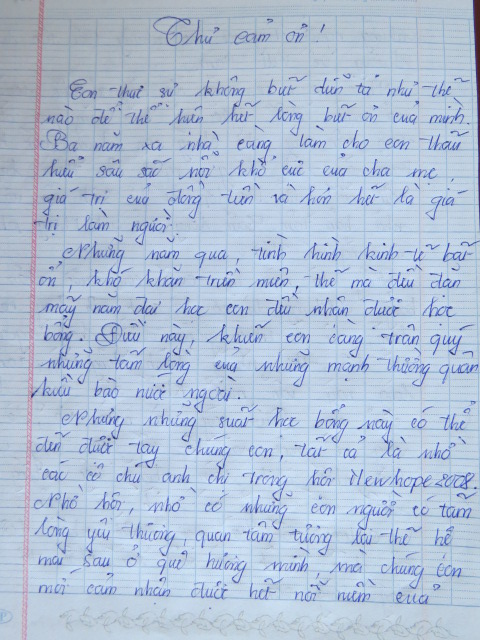 Thư cảm ơn!
Con thực sự không biết diễn tả như thế
nào để thể hiện hết lòng biết ơn của mình.
Ba năm xa nhà càng làm cho con thấu
hiểu sâu sắc nỗi khổ cực của cha mẹ,
giá trị của đồng tiền và hơn hết là giá
trị làm người.
Những năm qua, tình hình kinh tế bất
ổn, khó khăn triền miên, thế mà đều đặn
mấy năm đại học con đều nhận được học
bổng. Điều này, khiến con càng trân quý
những tấm lòng của những mạnh thường quân
kiều bào nước ngoài.
Nhưng những suất học bổng này có thể
đến được tay chúng con, tất cả là nhờ
các cô chú anh chị trong hội Newhope2008.
Nhờ hội, nhờ có những con người có tấm
lòng yêu thương, quan tâm tương lai thế hệ
mai sau ở quê hương mình, mà chúng con
mới cảm nhận được hết nỗi niềm của